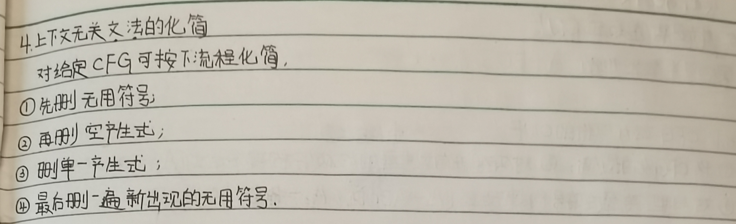 4.上下文无关文法的化简
对给定CFG可按下流程化简.
①先删无用符号;
②再删空产生式;
③删单一产生式;
④最后删一遍新出现的无用符号.